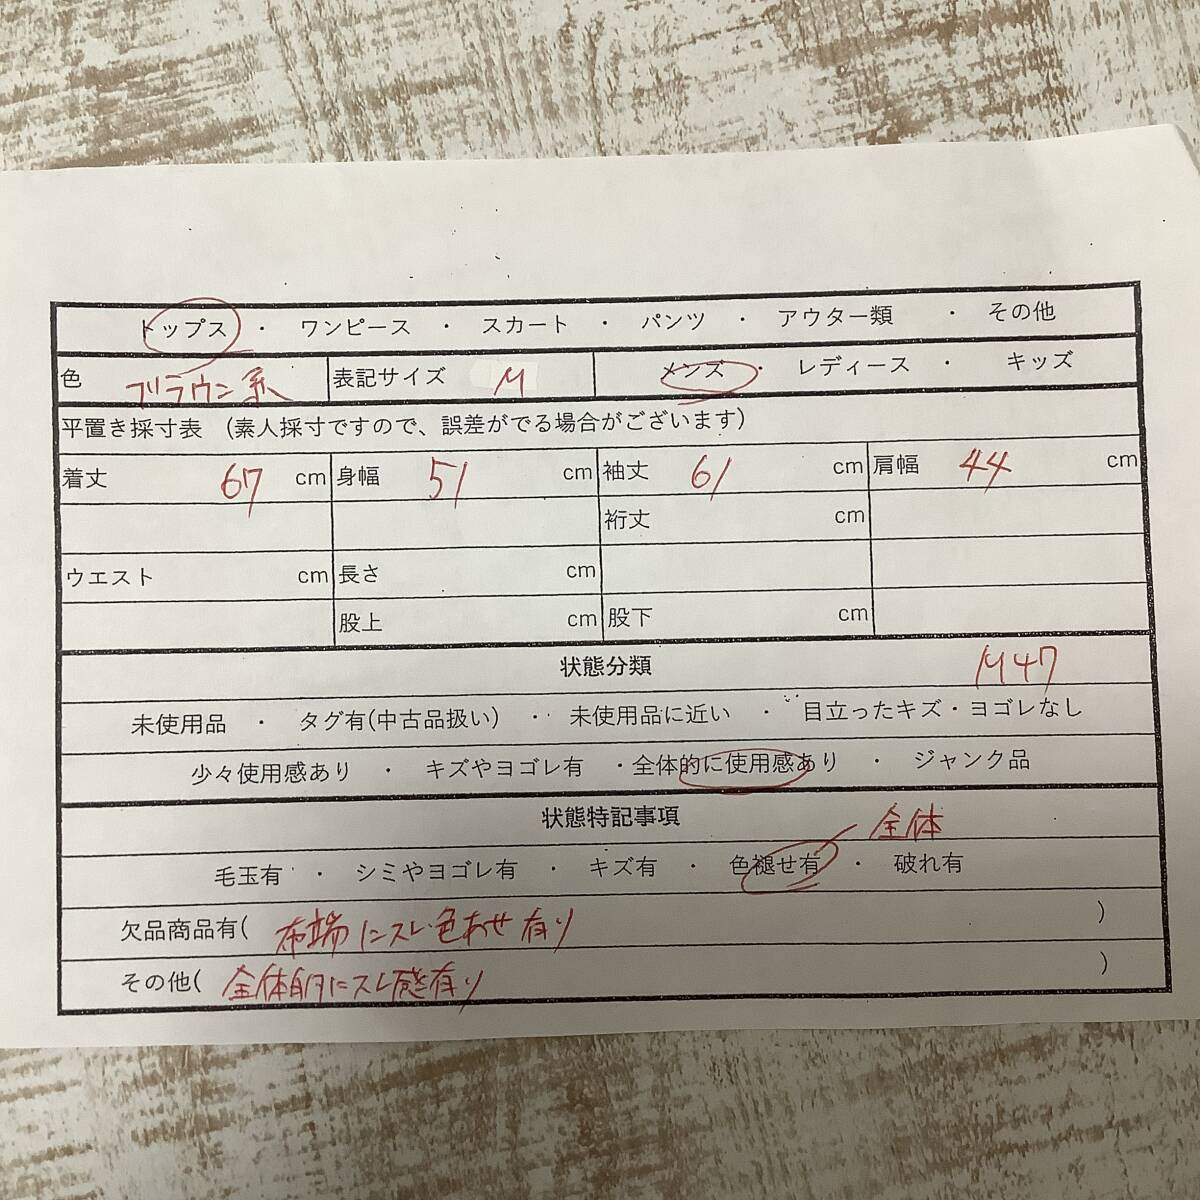 トップス ・ ワンピース ・ スカート ・ パンツ ・ アウター類 ・ その他
色 ブラウン系 表記サイズ M メンズ ・ レディース ・ キッズ
平置き採寸表 (素人採寸ですので、誤差がでる場合がございます)
着丈 67 cm 身幅 51 cm 袖丈 61 cm 肩幅 44 cm
裄丈 cm
ウエスト cm 長さ cm
股上 cm 股下 cm
状態分類 M47
未使用品 ・ タグ有(中古品扱い) ・ 未使用品に近い ・ 目立ったキズ・ヨゴレなし
少々使用感あり ・ キズやヨゴレ有 ・全体的に使用感あり ・ ジャンク品
状態特記事項 全体
毛玉有 ・ シミやヨゴレ有 ・ キズ有 ・ 色褪せ有 ・ 破れ有
欠品商品有( 布端にスレ色あせ有り )
その他( 全体的にスレ感有り )